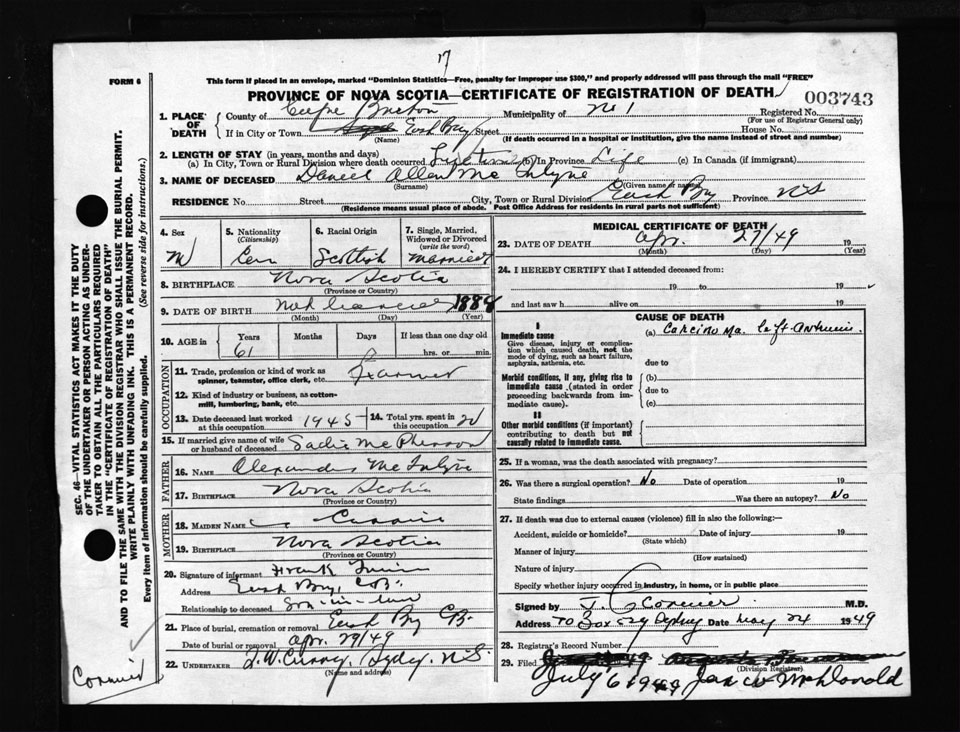 7
FORM 6
This form if placed in an envelope, marked "Dominion Statistics—Free, penalty for improper use $300," and properly addressed will pass through the mail "FREE"
PROVINCE OF NOVA SCOTIA—CERTIFICATE OF REGISTRATION OF DEATH
003743
1. PLACE OF DEATH
County of Cape Breton Municipality of No 1 Registered No.
(For use of Registrar General only)
If in City or Town East Bay Street House No.
(Name) (If death occurred in a hospital or institution, give the name instead of street and number)
2. LENGTH OF STAY (in years, months and days)
(a) In City, Town or Rural Division where death occurred Lifetime (b) In Province Life (c) In Canada (if immigrant)
3. NAME OF DECEASED Daniel Allan Mc Intyre
(Surname) (Given name or names)
RESIDENCE No. Street City, Town or Rural Division East Bay Province NS
(Residence means usual place of abode. Post Office Address for residents in rural parts not sufficient)
4. Sex
M
5. Nationality
(Citizenship)
Can
6. Racial Origin
Scottish
7. Single, Married, Widowed or Divorced
(write the word)
Married
8. BIRTHPLACE Nova Scotia
(Province or Country)
9. DATE OF BIRTH 1884
(Month) (Day) (Year)
10. AGE in
Years Months Days If less than one day old
61 hrs. or min.
OCCUPATION
11. Trade, profession or kind of work as spinner, teamster, office clerk, etc. Farmer
12. Kind of industry or business, as cotton-mill, lumbering, bank, etc.
13. Date deceased last worked at this occupation 1945
14. Total yrs. spent in this occupation
15. If married give name of wife or husband of deceased Sadie McPherson
FATHER
16. NAME Alexander McIntyre
17. BIRTHPLACE Nova Scotia
(Province or Country)
MOTHER
18. MAIDEN NAME Currie
19. BIRTHPLACE Nova Scotia
(Province or Country)
20. Signature of informant Frank
Address East Bay, C.B.
Relationship to deceased Son-in-law
21. Place of burial, cremation or removal East Bay CB.
Date of burial or removal Apr. 29/49
22. UNDERTAKER Curry, Sydney, N.S.
(Name and address)
MEDICAL CERTIFICATE OF DEATH
23. DATE OF DEATH Apr. 27/49 19
(Month) (Day) (Year)
24. I HEREBY CERTIFY that I attended deceased from:
19 to 19
and last saw h alive on 19
CAUSE OF DEATH
I
Immediate cause
Give disease, injury or complication which caused death, not the mode of dying, such as heart failure, asphyxia, asthenia, etc.
(a) Carcinoma. left antrum.
due to
Morbid conditions, if any, giving rise to immediate cause (stated in order proceeding backwards from immediate cause).
(b)
due to
(c)
II
Other morbid conditions (if important) contributing to death but not causally related to immediate cause.
25. If a woman, was the death associated with pregnancy?
26. Was there a surgical operation? No Date of operation 19
State findings Was there an autopsy? No
27. If death was due to external causes (violence) fill in also the following:—
Accident, suicide or homicide? Date of injury 19
(State which)
Manner of injury
(How sustained)
Nature of injury
Specify whether injury occurred in industry, in home, or in public place
Signed by M.D.
Address Box 529 Sydney Date May 24 1949
28. Registrar's Record Number
29. Filed
(Division Registrar)
July 6 1949 McDonald
SEC. 46—VITAL STATISTICS ACT MAKES IT THE DUTY
OF THE UNDERTAKER OR PERSON ACTING AS UNDERTAKER TO OBTAIN ALL THE PARTICULARS REQUIRED
IN THE "CERTIFICATE OF REGISTRATION OF DEATH"
AND TO FILE THE SAME WITH THE DIVISION REGISTRAR WHO SHALL ISSUE THE BURIAL PERMIT.
WRITE PLAINLY WITH UNFADING INK. THIS IS A PERMANENT RECORD.
Every item of information should be carefully supplied. (See reverse side for instructions.)